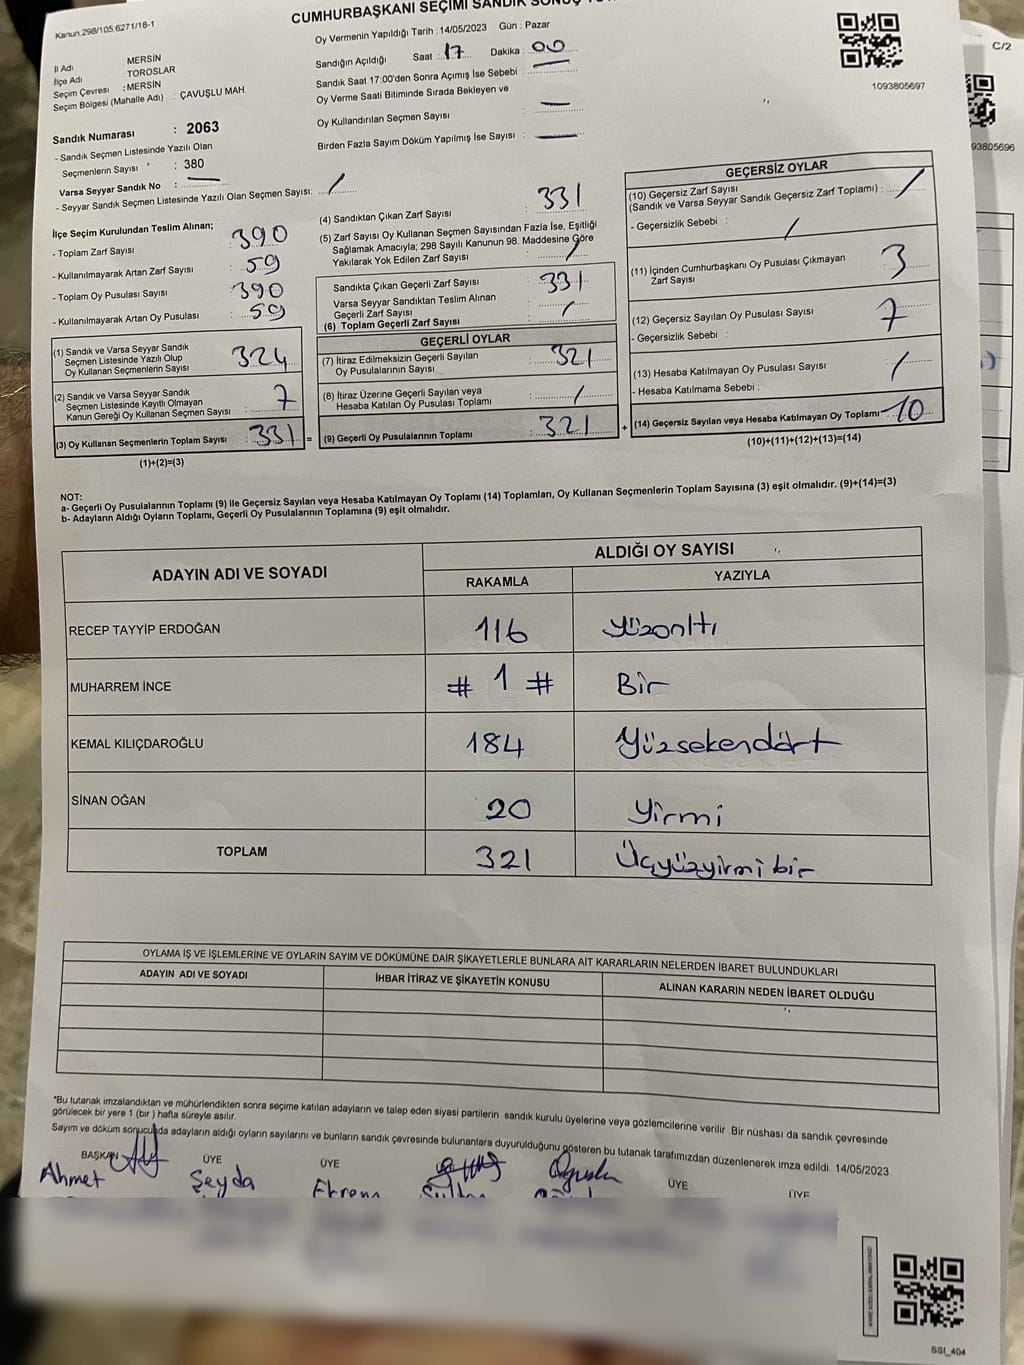 Kanun.298/105,6271/18-1
CUMHURBAŞKANI SEÇİMİ SANDIK
Oy Vermenin Yapıldığı Tarih : 14/05/2023 Gün : Pazar
Sandığın Açıldığı Saat : 17 Dakika : 00
Sandık Saat 17:00'den Sonra Açımış İse Sebebi :
Oy Verme Saati Bitiminde Sırada Bekleyen ve
Oy Kullandırılan Seçmen Sayısı :
Birden Fazla Sayım Döküm Yapılmış İse Sayısı :
1093805697
C/2
93805696
İl Adı MERSİN
İlçe Adı TOROSLAR
Seçim Çevresi : MERSİN
Seçim Bölgesi (Mahalle Adı) : ÇAVUŞLU MAH.
Sandık Numarası : 2063
- Sandık Seçmen Listesinde Yazılı Olan
Seçmenlerin Sayısı : 380
Varsa Seyyar Sandık No :
- Seyyar Sandık Seçmen Listesinde Yazılı Olan Seçmen Sayısı: /
İlçe Seçim Kurulundan Teslim Alınan;
- Toplam Zarf Sayısı : 390
- Kullanılmayarak Artan Zarf Sayısı : 59
- Toplam Oy Pusulası Sayısı : 390
- Kullanılmayarak Artan Oy Pusulası : 59
(1) Sandık ve Varsa Seyyar Sandık
Seçmen Listesinde Yazılı Olup
Oy Kullanan Seçmenlerin Sayısı : 324
(2) Sandık ve Varsa Seyyar Sandık
Seçmen Listesinde Kayıtlı Olmayan
Kanun Gereği Oy Kullanan Seçmen Sayısı : 7
(3) Oy Kullanan Seçmenlerin Toplam Sayısı : 331 =
(1)+(2)=(3)
(4) Sandıktan Çıkan Zarf Sayısı : 331
(5) Zarf Sayısı Oy Kullanan Seçmen Sayısından Fazla İse, Eşitliği
Sağlamak Amacıyla; 298 Sayılı Kanunun 98. Maddesine Göre
Yakılarak Yok Edilen Zarf Sayısı : /
Sandıkta Çıkan Geçerli Zarf Sayısı : 331
Varsa Seyyar Sandıktan Teslim Alınan
Geçerli Zarf Sayısı : /
(6) Toplam Geçerli Zarf Sayısı
GEÇERLİ OYLAR
(7) İtiraz Edilmeksizin Geçerli Sayılan
Oy Pusulalarının Sayısı : 321
(8) İtiraz Üzerine Geçerli Sayılan veya
Hesaba Katılan Oy Pusulası Toplamı : /
(9) Geçerli Oy Pusulalarının Toplamı : 321 +
GEÇERSİZ OYLAR
(10) Geçersiz Zarf Sayısı
(Sandık ve Varsa Seyyar Sandık Geçersiz Zarf Toplamı) : /
- Geçersizlik Sebebi : /
(11) İçinden Cumhurbaşkanı Oy Pusulası Çıkmayan
Zarf Sayısı : 3
(12) Geçersiz Sayılan Oy Pusulası Sayısı : 7
- Geçersizlik Sebebi :
(13) Hesaba Katılmayan Oy Pusulası Sayısı : /
- Hesaba Katılmama Sebebi :
(14) Geçersiz Sayılan veya Hesaba Katılmayan Oy Toplamı : 10
(10)+(11)+(12)+(13)=(14)
NOT:
a- Geçerli Oy Pusulalarının Toplamı (9) ile Geçersiz Sayılan veya Hesaba Katılmayan Oy Toplamı (14) Toplamları, Oy Kullanan Seçmenlerin Toplam Sayısına (3) eşit olmalıdır. (9)+(14)=(3)
b- Adayların Aldığı Oyların Toplamı, Geçerli Oy Pusulalarının Toplamına (9) eşit olmalıdır.
ADAYIN ADI VE SOYADI
ALDIĞI OY SAYISI
RAKAMLA YAZIYLA
RECEP TAYYİP ERDOĞAN 116 Yüzonltı
MUHARREM İNCE # 1 # Bir
KEMAL KILIÇDAROĞLU 184 Yüzseksendört
SİNAN OĞAN 20 Yirmi
TOPLAM 321 Üçyüzyirmi bir
OYLAMA İŞ VE İŞLEMLERİNE VE OYLARIN SAYIM VE DÖKÜMÜNE DAİR ŞİKAYETLERLE BUNLARA AİT KARARLARIN NELERDEN İBARET BULUNDUKLARI
ADAYIN ADI VE SOYADI İHBAR İTİRAZ VE ŞİKAYETİN KONUSU ALINAN KARARIN NEDEN İBARET OLDUĞU
*Bu tutanak imzalandıktan ve mühürlendikten sonra seçime katılan adayların ve talep eden siyasi partilerin sandık kurulu üyelerine veya gözlemcilerine verilir. Bir nüshası da sandık çevresinde
görülecek bir yere 1 (bir ) hafta süreyle asılır.
Sayım ve döküm sonucunda adayların aldığı oyların sayılarını ve bunların sandık çevresinde bulunanlara duyurulduğunu gösteren bu tutanak tarafımızdan düzenlenerek imza edildi. 14/05/2023
BAŞKAN ÜYE ÜYE ÜYE ÜYE
Ahmet Şeyda
SSI_404